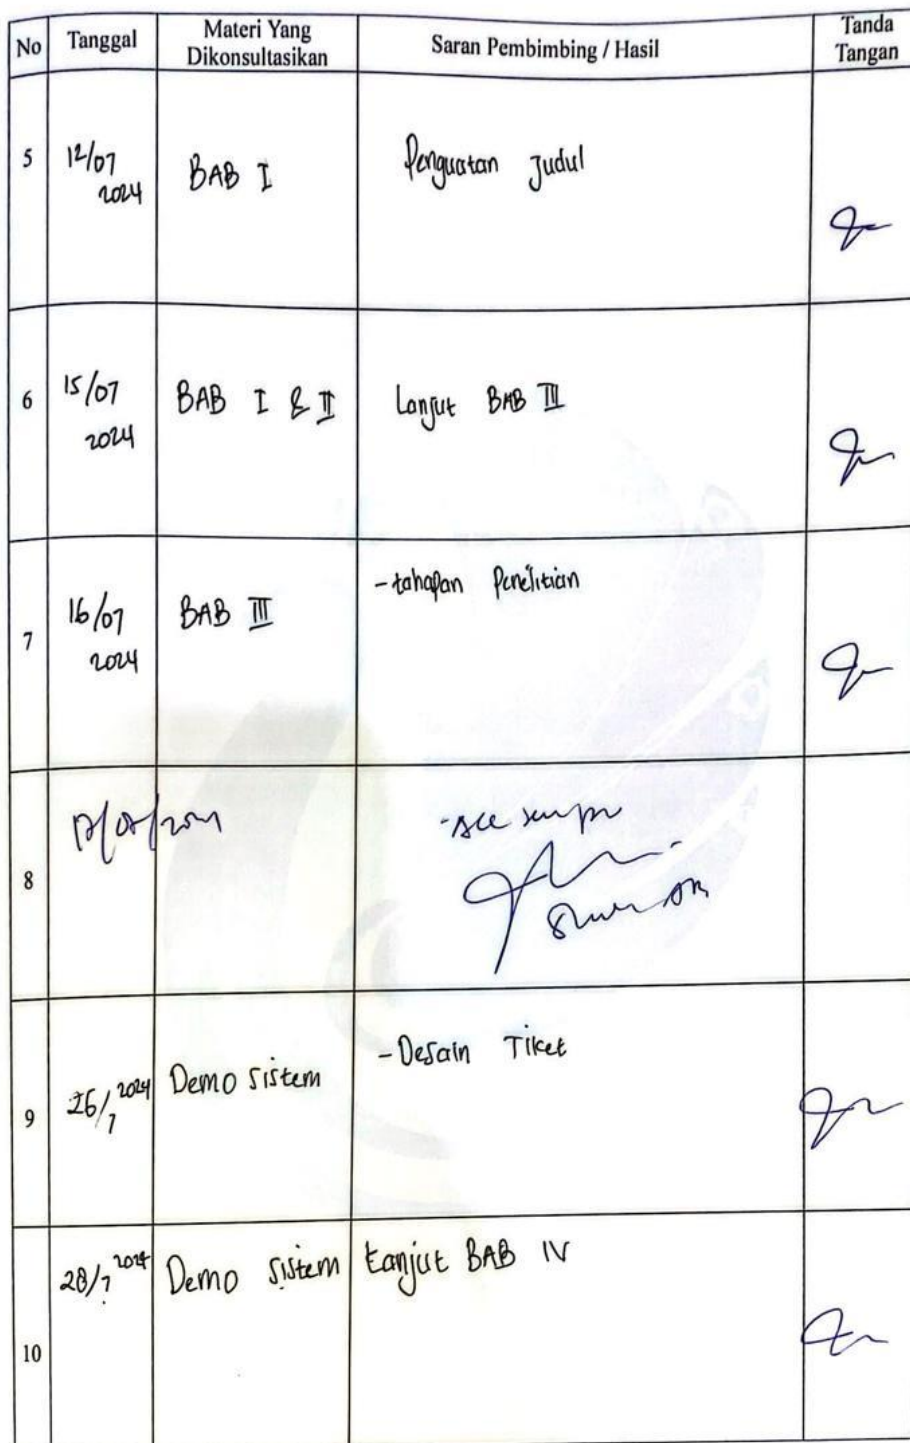 No Tanggal Materi Yang Dikonsultasikan Saran Pembimbing / Hasil Tanda Tangan
5 12/07 2024 BAB I Penguatan Judul
6 15/07 2024 BAB I & II Lanjut BAB III
7 16/07 2024 BAB III -tahapan Penelitian
8 -Acc sempro
9 26/7 2024 Demo sistem -Desain Tiket
10 28/7 2024 Demo sistem Lanjut BAB IV